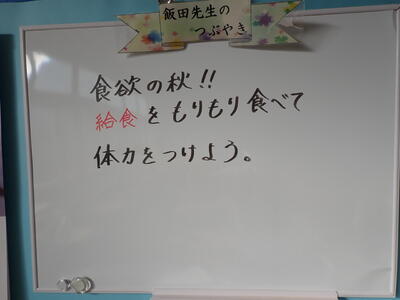 飯田先生の
つぶやき
食欲の秋!!
給食をもりもり食べて
体力をつけよう。